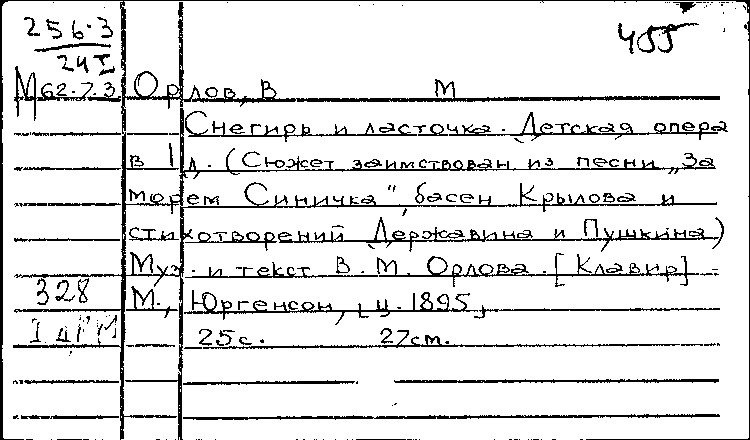 256.3
455
24 I
М62.7.3. Орлов, В М
Снегирь и ласточка. Детская опера
в 1 д. (Сюжет заимствован из песни „За
морем Синичка", басен Крылова и
стихотворений Державина и Пушкина)
Муз. и текст В. М. Орлова. [Клавир] -
328 М., Юргенсон, [ц. 1895]
25 с. 27 см.